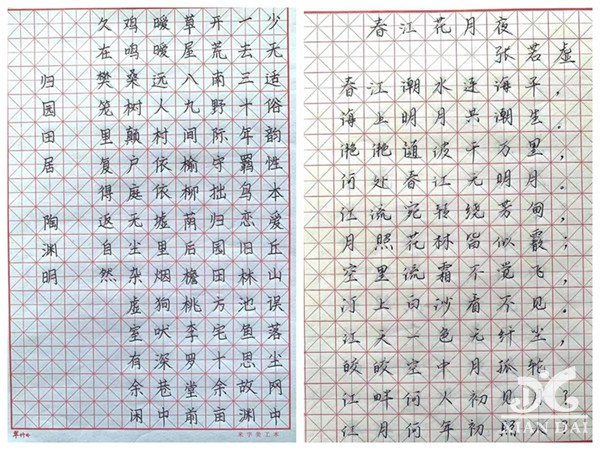 少无适俗韵性本爱丘山误落尘网中
一去三十年羁鸟恋旧林池鱼思故渊
开荒南野际守拙归园田方宅十余亩
草屋八九间榆柳荫后檐桃李罗堂前
暧暧远人村依依墟里烟狗吠深巷中
鸡鸣桑树颠户庭无尘杂虚室有余闲
久在樊笼里复得返自然
归园田居 陶渊明
春江花月夜
张若虚
春江潮水连海平，
海上明月共潮生。
滟滟随波千万里，
何处春江无明月。
江流宛转绕芳甸，
月照花林皆似霰；
空里流霜不觉飞，
汀上白沙看不见。
江天一色无纤尘，
皎皎空中月孤轮。
江畔何人初见月？
江月何年初照人？